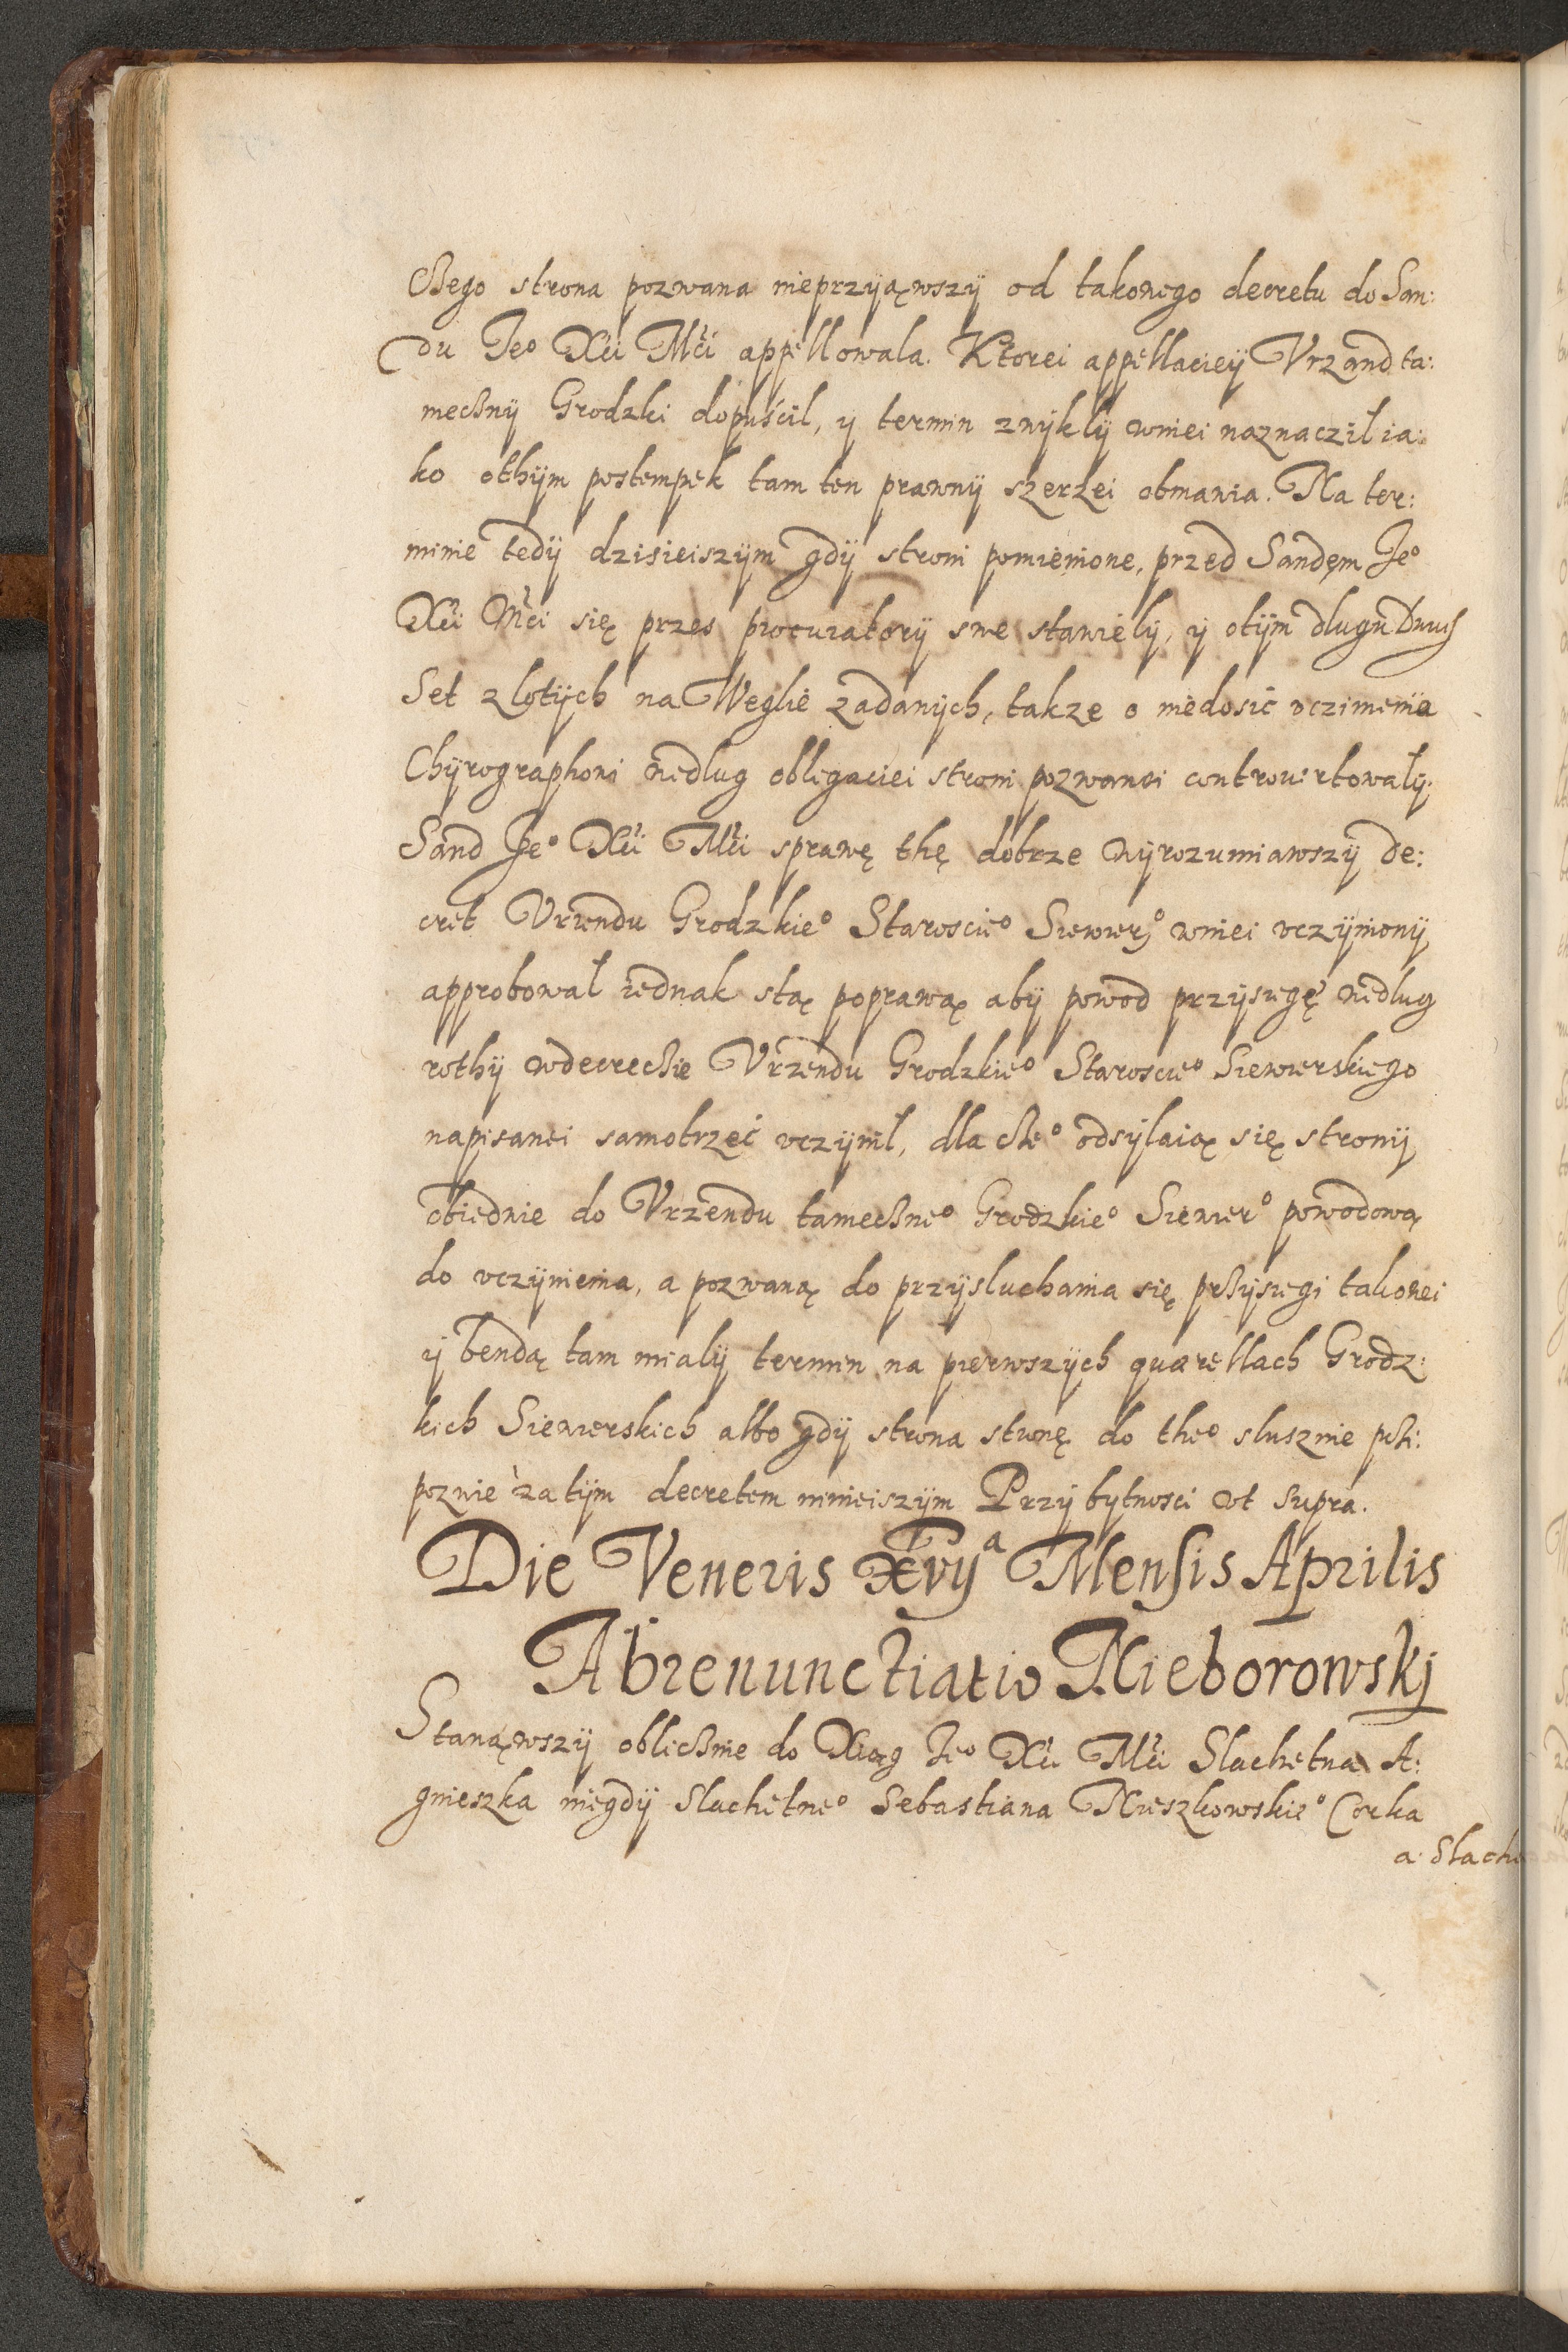 czego strona pozwana nieprzyiąwszÿ od takowego decretu do San:
du Jeº Xci Mći appellowala. Ktorei appellacieÿ Vrzand ta:
mecznÿ Grodzki dopuścil, y termin zwÿklÿ wniei naznaczÿl ia:
ko othÿm postempek tam ten prawnÿ szerzei obmawia. Na ter:
minie tedÿ dzisieiszÿm gdÿ stroni pomienione, przed Sandęm Jeº
Xci Mći się przes procuratorÿ swe stawielÿ, ÿ otÿm dlugu Dwuch
Set zlotÿch na Weglie zadanÿch, takze o niedosić vczinienia
Chÿrographowi wedlug obligaciei stroni pozwanei controwertowalÿ.
Sand Jeº Xci Mći sprawę thę dobrze wÿrozumiawszÿ de:
cret Vrzendu Grodzkieº Staroscieº Siewierº wniei vczÿnionÿ
approbowal iednak stą poprawą abÿ powod przÿsięgę wedlug
rothÿ wdecreczie Vrzendu Grodzkieº Staroscieº Siewierskiego
napisanei samotrzeć vczÿnil, dla czeº odsÿlaią się stronÿ
obiedwie do Vrzendu tameczneº Grodzkieº Siewierº powodową
do vczÿnienia, a pozwaną do przÿsluchania się przÿsięgi takowei
ÿ bendą tam mialÿ termin na pierwszÿch querellach Grodz:
kich Siewierskich albo gdÿ strona stronę do theº slusznie przi:
pozwie zatÿm decretem ninieiszÿm Przÿ bytnosci vt supra.
Die Veneris Xvijª Mensis Aprilis
Abrenunctiatio Nieborowskj
Stanąwszÿ oblicznie do Xiąg Jeº Xci Mći Slachetna A:
gnieszka niegdÿ Slachetneº Sebastiana Mieszkowskieº Corka
a Slache